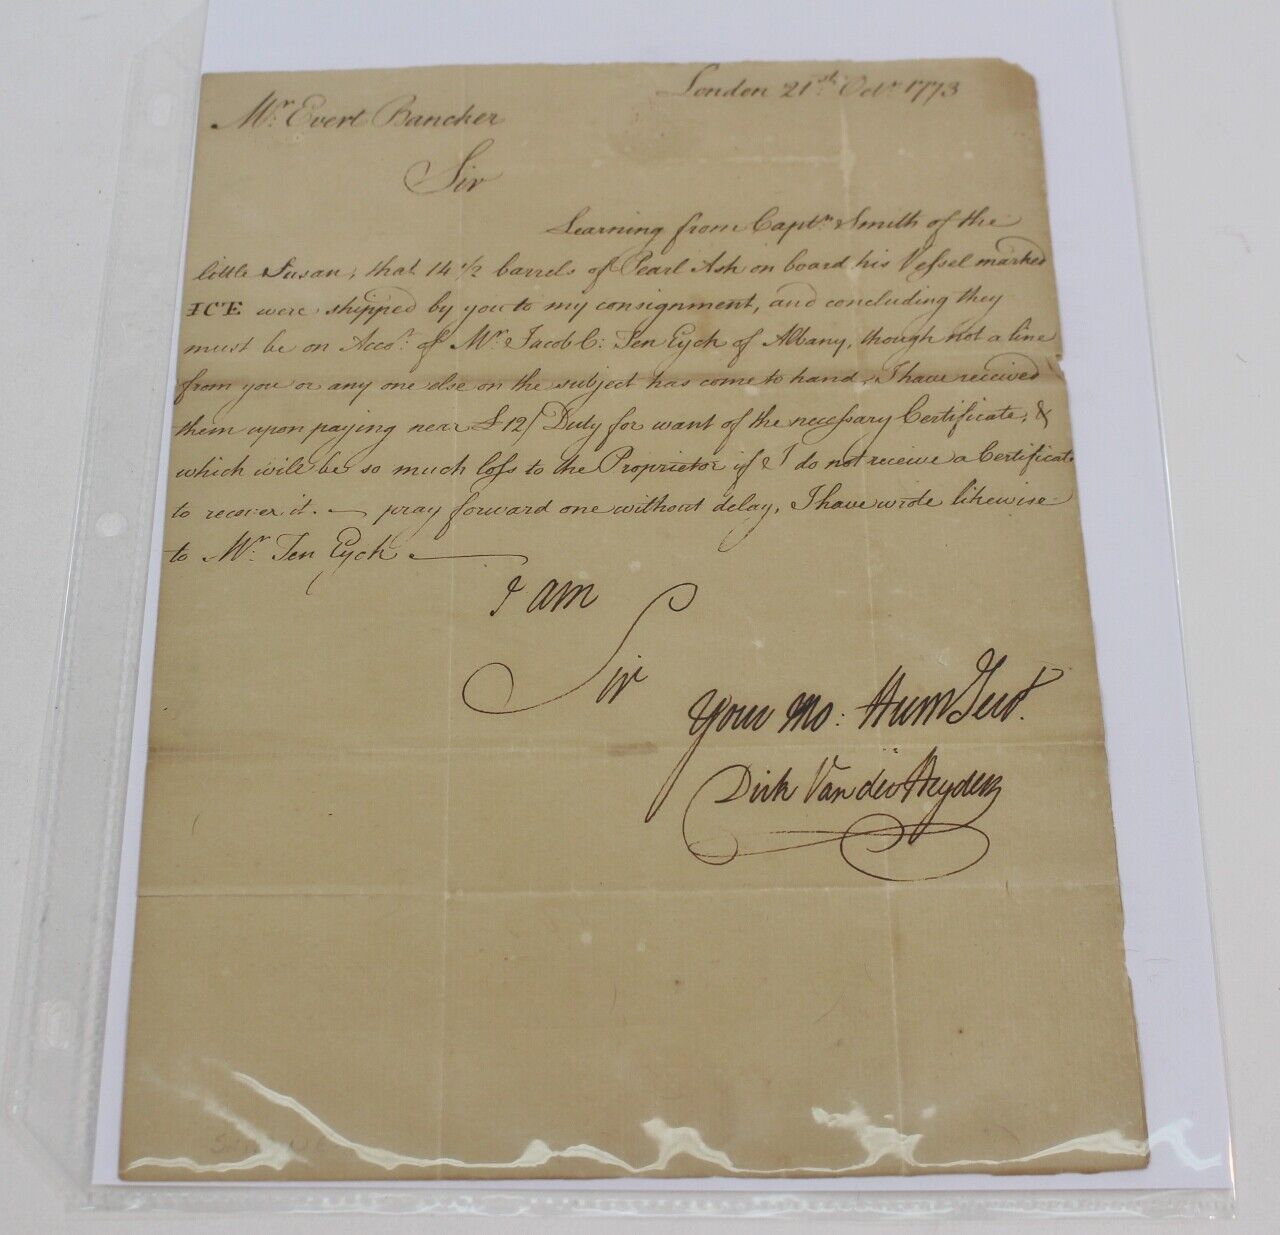 London 21st. Octr. 1773
Mr. Evert Bancker
Sir
Learning from Captn. Smith of the
little Susan, that 14 1/2 barrels of Pearl Ash on board his Vessel marked
ICE were shipped by you to my consignment, and concluding they
must be on Acco.t of Mr. Jacob C: Ten Eyck of Albany, though not a line
from you or any one else on the subject has come to hand, I have received
them upon paying near £12/ Duty for want of the necessary Certificate, &
which will be so much loss to the Proprietor if I do not receive a Certificate
to recover it. — pray forward one without delay, I have wrote likewise
to Mr. Ten Eyck —
I am
Sir
Your Mo: Hum Servt.
Dirk Van der Heyden